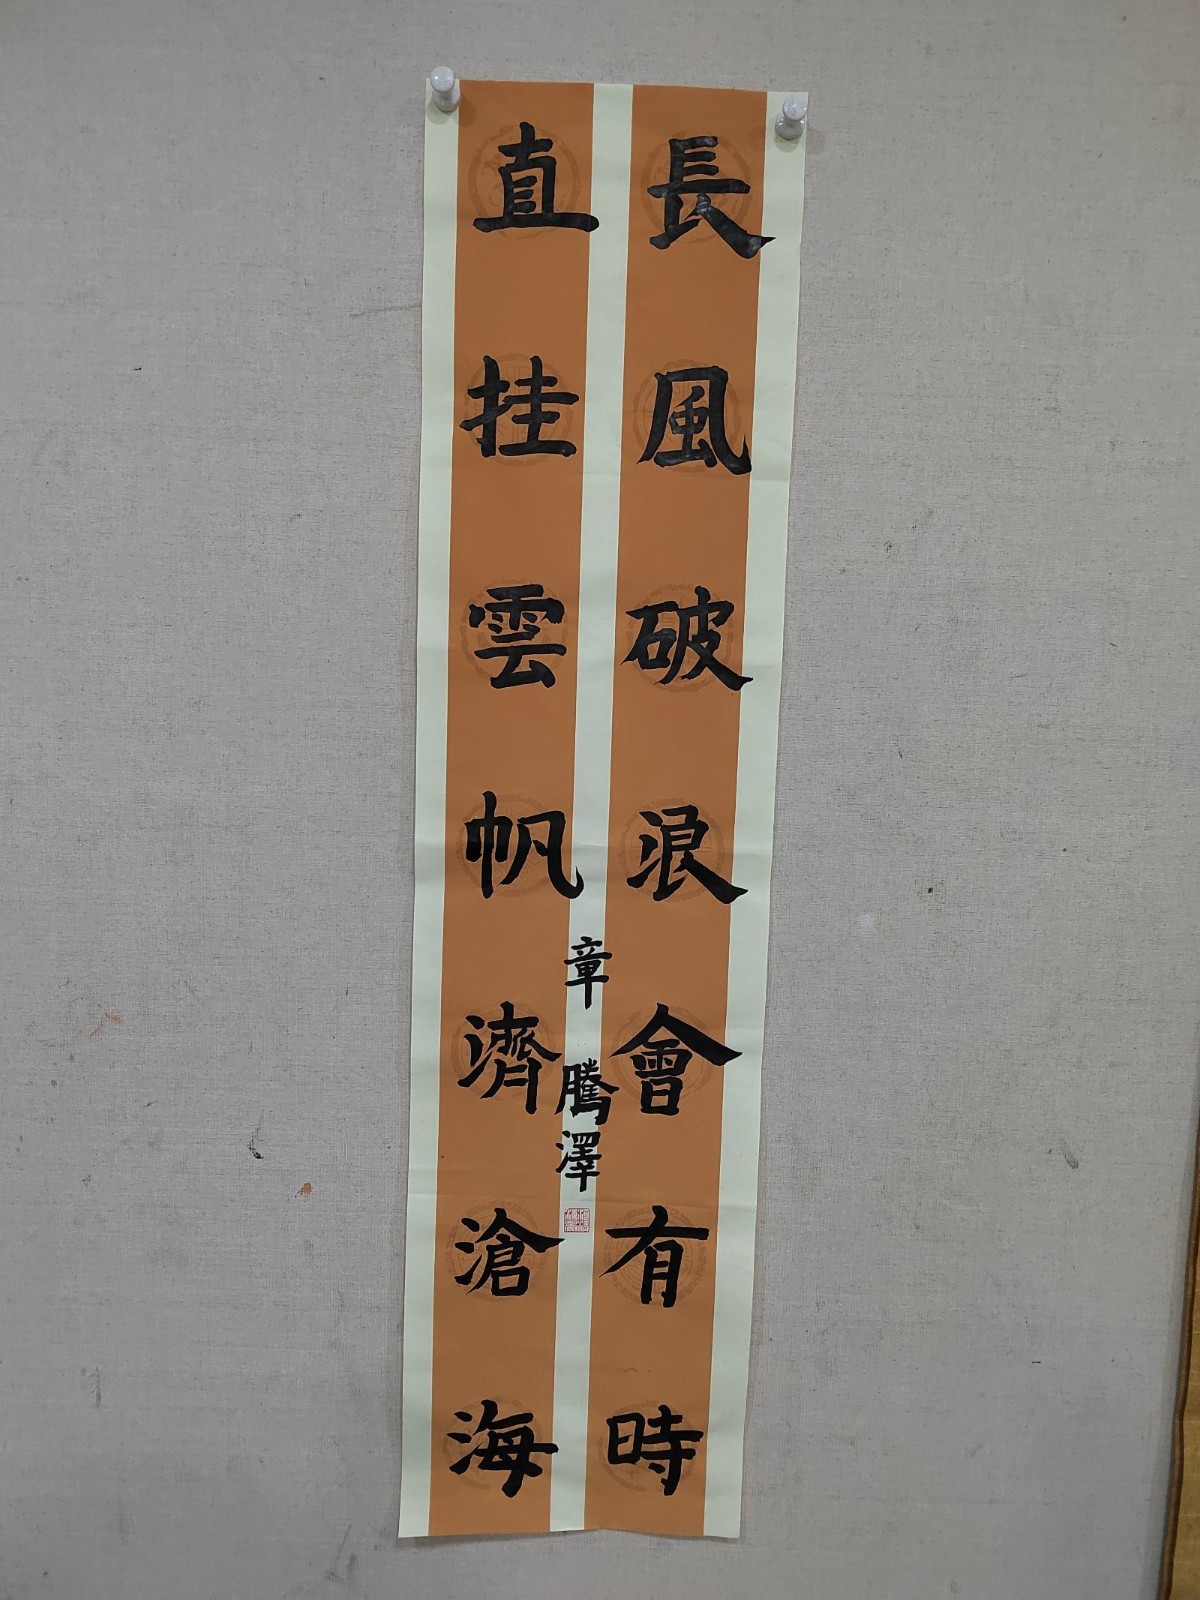 長風破浪會有時
直挂雲帆濟滄海
章騰澤